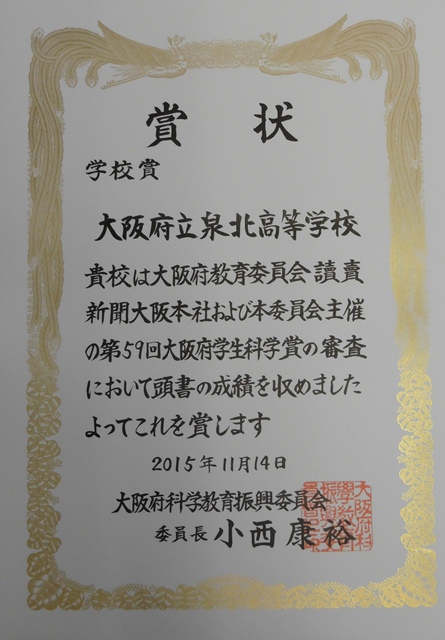 賞 状
学校賞
大阪府立泉北高等学校
貴校は大阪府教育委員会 讀賣
新聞大阪本社および本委員会主催
の第59回大阪府学生科学賞の審査
において頭書の成績を収めました
よってこれを賞します
2015年11月14日
大阪府科学教育振興委員会
委員長 小西康裕